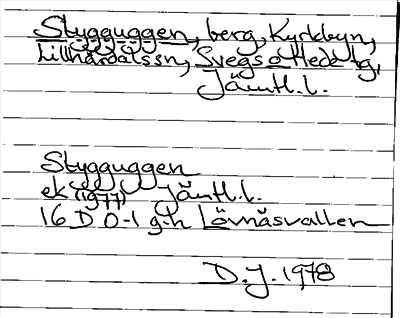 Stygguggen, berg, Kyrkbyn,
Lillhärdalssn, Svegs o Hede tg,
Jämtl.l.
Stygguggen
ek (1977) Jämtl.l.
16 D 0-1 g-h Lövnäsvallen
D.J. 1978